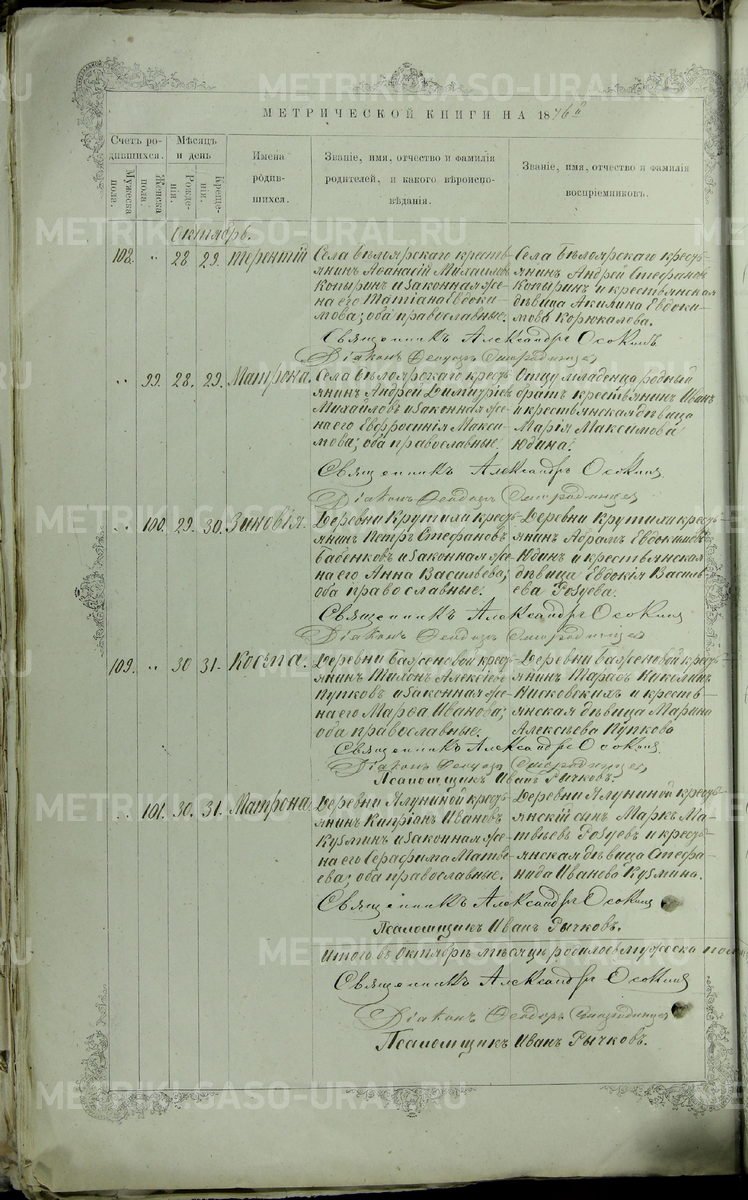 МЕТРИЧЕСКОЙ КНИГИ НА 1876 й
Счетъ родившихся.
Мужеска пола.
Женска пола.
Мѣсяцъ и день
Рожденія.
Крещенія.
Имена родившихся.
Званіе, имя, отчество и фамилія родителей, и какого вѣроисповѣданія.
Званіе, имя, отчество и фамилія воспріемниковъ.
Октябрь.
108. „ 28. 29. Терентій
Села Бѣлоярскаго кресть-
янинъ Аѳанасій Михаиловъ
Копыринъ и законная же-
на его Татіана Евдоки-
мова; оба православные.
Села Бѣлоярскаго кресть-
янинъ Андрей Стефановъ
Копыринъ и крестьянская
дѣвица Акилина Евдоки-
мова Корюкалова.
Священникъ Александръ Осокинъ
Діаконъ Ѳеодоръ
„ 99. 28. 29. Матрона.
Села Бѣлоярскаго кресть-
янинъ Андрей Димитріевъ
Михайловъ и законная же-
на его Евфросинія Макси-
мова; оба православные.
Отцу младенца родный
братъ крестьянинъ Иванъ
и крестьянская дѣвица
Марія Максимова
Юдина.
Священникъ Александръ Осокинъ
Діаконъ Ѳеодоръ
„ 100. 29. 30. Зиновія.
Деревни Крутихи кресть-
янинъ Петръ Стефановъ
Бабенковъ и законная же-
на его Анна Васильева;
оба православные.
Деревни Крутихи кресть-
янинъ Абрамъ Евдокимовъ
Юдинъ и крестьянская
дѣвица Евдокія Василь-
ева Гозуева.
Священникъ Александръ Осокинъ
Діаконъ Ѳеодоръ
109. „ 30 31. Косьма.
Деревни Баженовой кресть-
янинъ Тихонъ Алексѣевъ
Пупковъ и законная же-
на его Марѳа Иванова;
оба православные.
Деревни Баженовой кресть-
янинъ Тарасъ
и кресть-
янская дѣвица Марина
Алексѣева Пупкова
Священникъ Александръ Осокинъ
Діаконъ Ѳеодоръ
Псаломщикъ Иванъ Рычковъ.
„ 101. 30. 31. Матрона.
Деревни Ялуниной кресть-
янинъ Капріанъ Ивановъ
Кузминъ и законная же-
на его Серафима Матвѣ-
ева; оба православные.
Деревни Ялуниной кресть-
янскій сынъ Маркъ Ма-
твѣевъ Гозуевъ и кресть-
янская дѣвица Стефа-
нида Иванова Кузмина.
Священникъ Александръ Осокинъ
Псаломщикъ Иванъ Рычковъ.
Итого въ Октябрѣ мѣсяцѣ родилось мужеска пола
Священникъ Александръ Осокинъ
Діаконъ Ѳеодоръ
Псаломщикъ Иванъ Рычковъ.
METRIKI.GASO-URAL.RU